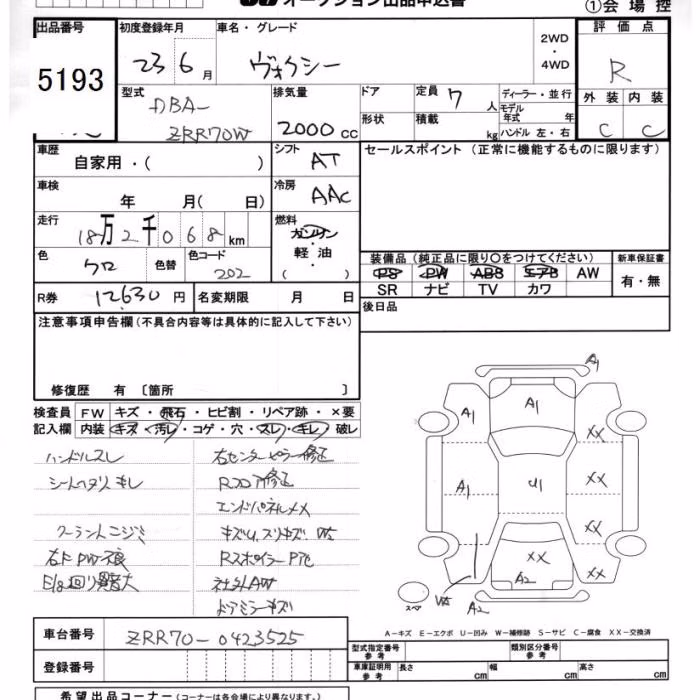 オークション出品申込書
①会場控
出品番号 初度登録年月 車名・グレード 2WD・4WD 評価点
5193 23 6月 ヴォクシー R
型式 排気量 ドア 定員 ディーラー・並行 外装 内装
DBA- 7人 モデル年式 年
ZRR70W 2000cc 形状 積載 kg ハンドル 左・右 C C
車歴 自家用・( ) シフト AT セールスポイント (正常に機能するものに限ります)
車検 年 月(日) 冷房 AAC
走行 18万2千068km 燃料 ガソリン
軽油
( )
色 クロ 色替 色コード 202
装備品 (純正品に限り○をつけてください) 新車保証書
PS PW ABS エアB AW 有・無
SR ナビ TV カワ
R券 12,630円 名変期限 月 日 後日品
注意事項申告欄 (不具合内容等は具体的に記入して下さい)
修復歴 有 〔箇所 〕
検査員 FW キズ・飛石・ヒビ割・リペア跡・×要
記入欄 内装 キズ・汚レ・コゲ・穴・スレ・キレ・破レ
ハンドルスレ 右センターピラー修正
シートヘタリ キレ Rフロア修正
エンドパネルXX
クーラントニジミ キズU、スリキズ、W5
右F PW不良 Rスポイラー
E/g回り異音大 社外AW
ドアミラーキズ
A1
A1 A1 XX
A1 U1 XX
XX
XX XX
A2
スペア W5 A2
A−キズ E−エクボ U−凹み W−補修跡 S−サビ C−腐食 XX−交換済
車台番号 ZRR70-0423525 型式指定番号 参考 類別区分番号 参考
登録番号 車庫証明用 参考 長さ cm 幅 cm 高さ cm
希望出品コーナー (コーナーは各会場により異なります。)